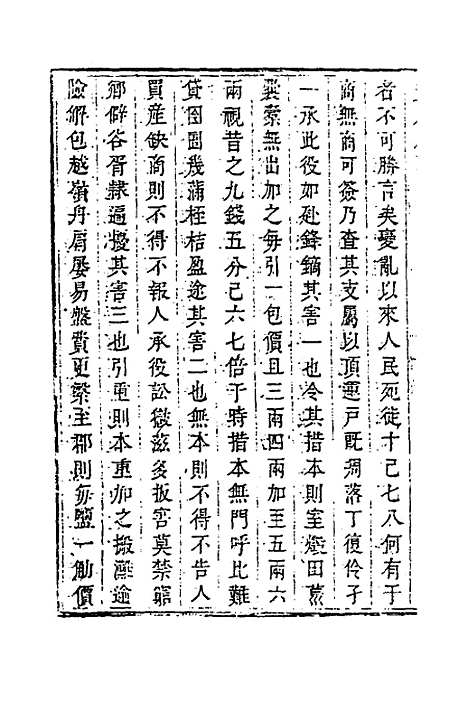 者不可勝言矣憂亂以來人民死徒十已七八何有于
商無商可簽乃查其支屬以頂運戸既凋落丁復伶孑
一承此役如赴鋒鏑其害一也冷其措本則室燬田荒
囊索無出加之每引一包價且三兩四兩加至五兩六
兩視昔之九錢五分已六七倍于時措本無門呼比難
貸囹圄幾蒲桎梏盈途其害二也無本則不得不告人
買産缺商則不得不報人承役訟獄滋多扳害莫禁窮
鄉僻谷胥隸遍擾其害三也引重則本重加之搬灘途
險解包越嶺舟肩屡易盤費更繁至郡則每鹽一觔價